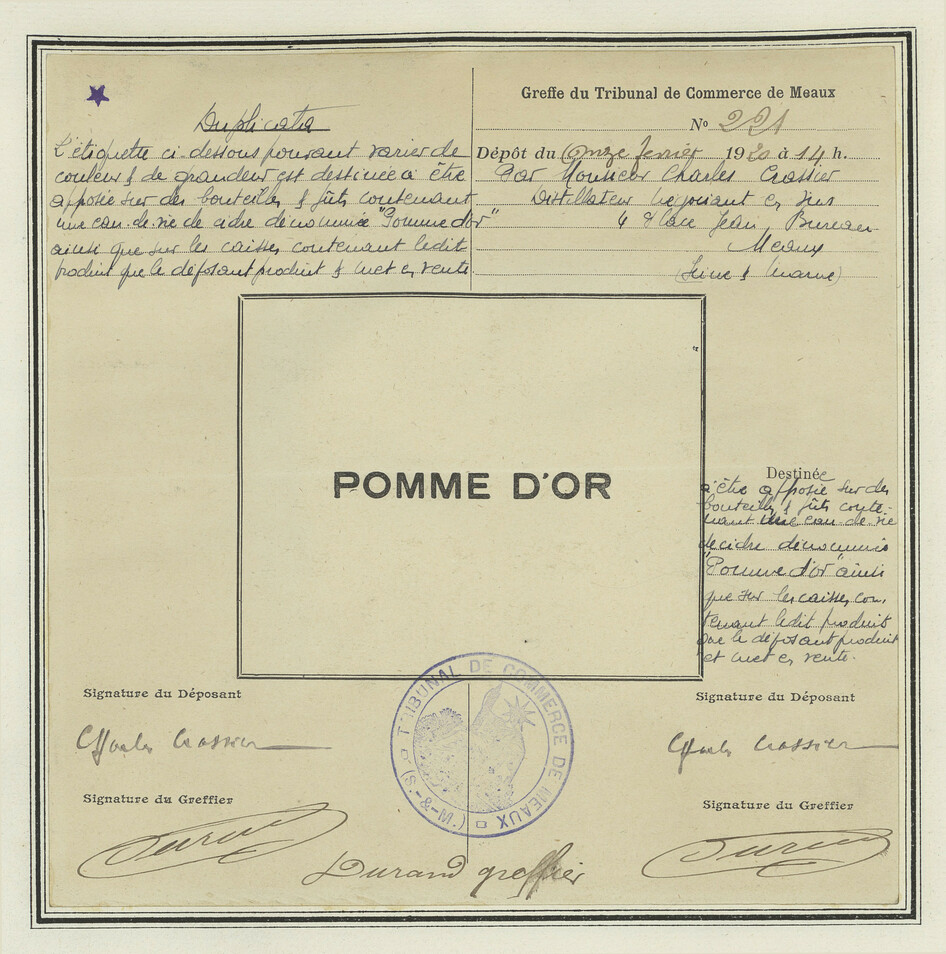 Duplicata
L'étiquette ci-dessous pouvant varier de
couleur & de grandeur est destinée à être
apposée sur des bouteilles & fûts contenant
une eau-de-vie de cidre dénommée "Pomme d'or"
ainsi que sur les caisses contenant ledit
produit que le déposant produit & met en vente
Greffe du Tribunal de Commerce de Meaux
No 221
Dépôt du onze février 1920 à 14 h.
Par Monsieur Charles Crassier
Distillateur Négociant en vins
Place Jean Bureau
Meaux
(Seine & Marne)
POMME D'OR
Destinée
à être apposée sur des
bouteilles & fûts conte-
nant une eau-de-vie
de cidre dénommée
"Pomme d'or" ainsi
que sur les caisses con-
tenant ledit produit
que le déposant produit
et met en vente.
Signature du Déposant
Charles Crassier
Signature du Greffier
Durand
Signature du Déposant
Charles Crassier
Signature du Greffier
Durand
TRIBUNAL DE COMMERCE DE MEAUX
(S.-&-M.)
Durand greffier